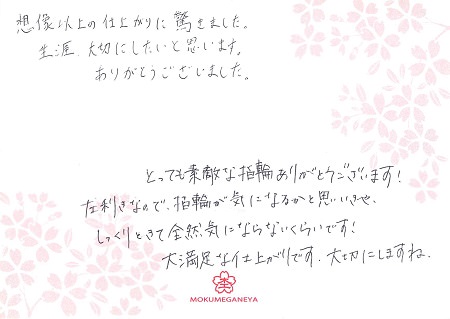 想像以上の仕上がりに驚きました。
生涯、大切にしたいと思います。
ありがとうございました。
とっても素敵な指輪ありがとうございます!
左利きなので、指輪が気になるかと思いいきや、
しっくりときて全然気にならないくらいです!
大満足な仕上がりです、大切にしますね。
MOKUMEGANEYA